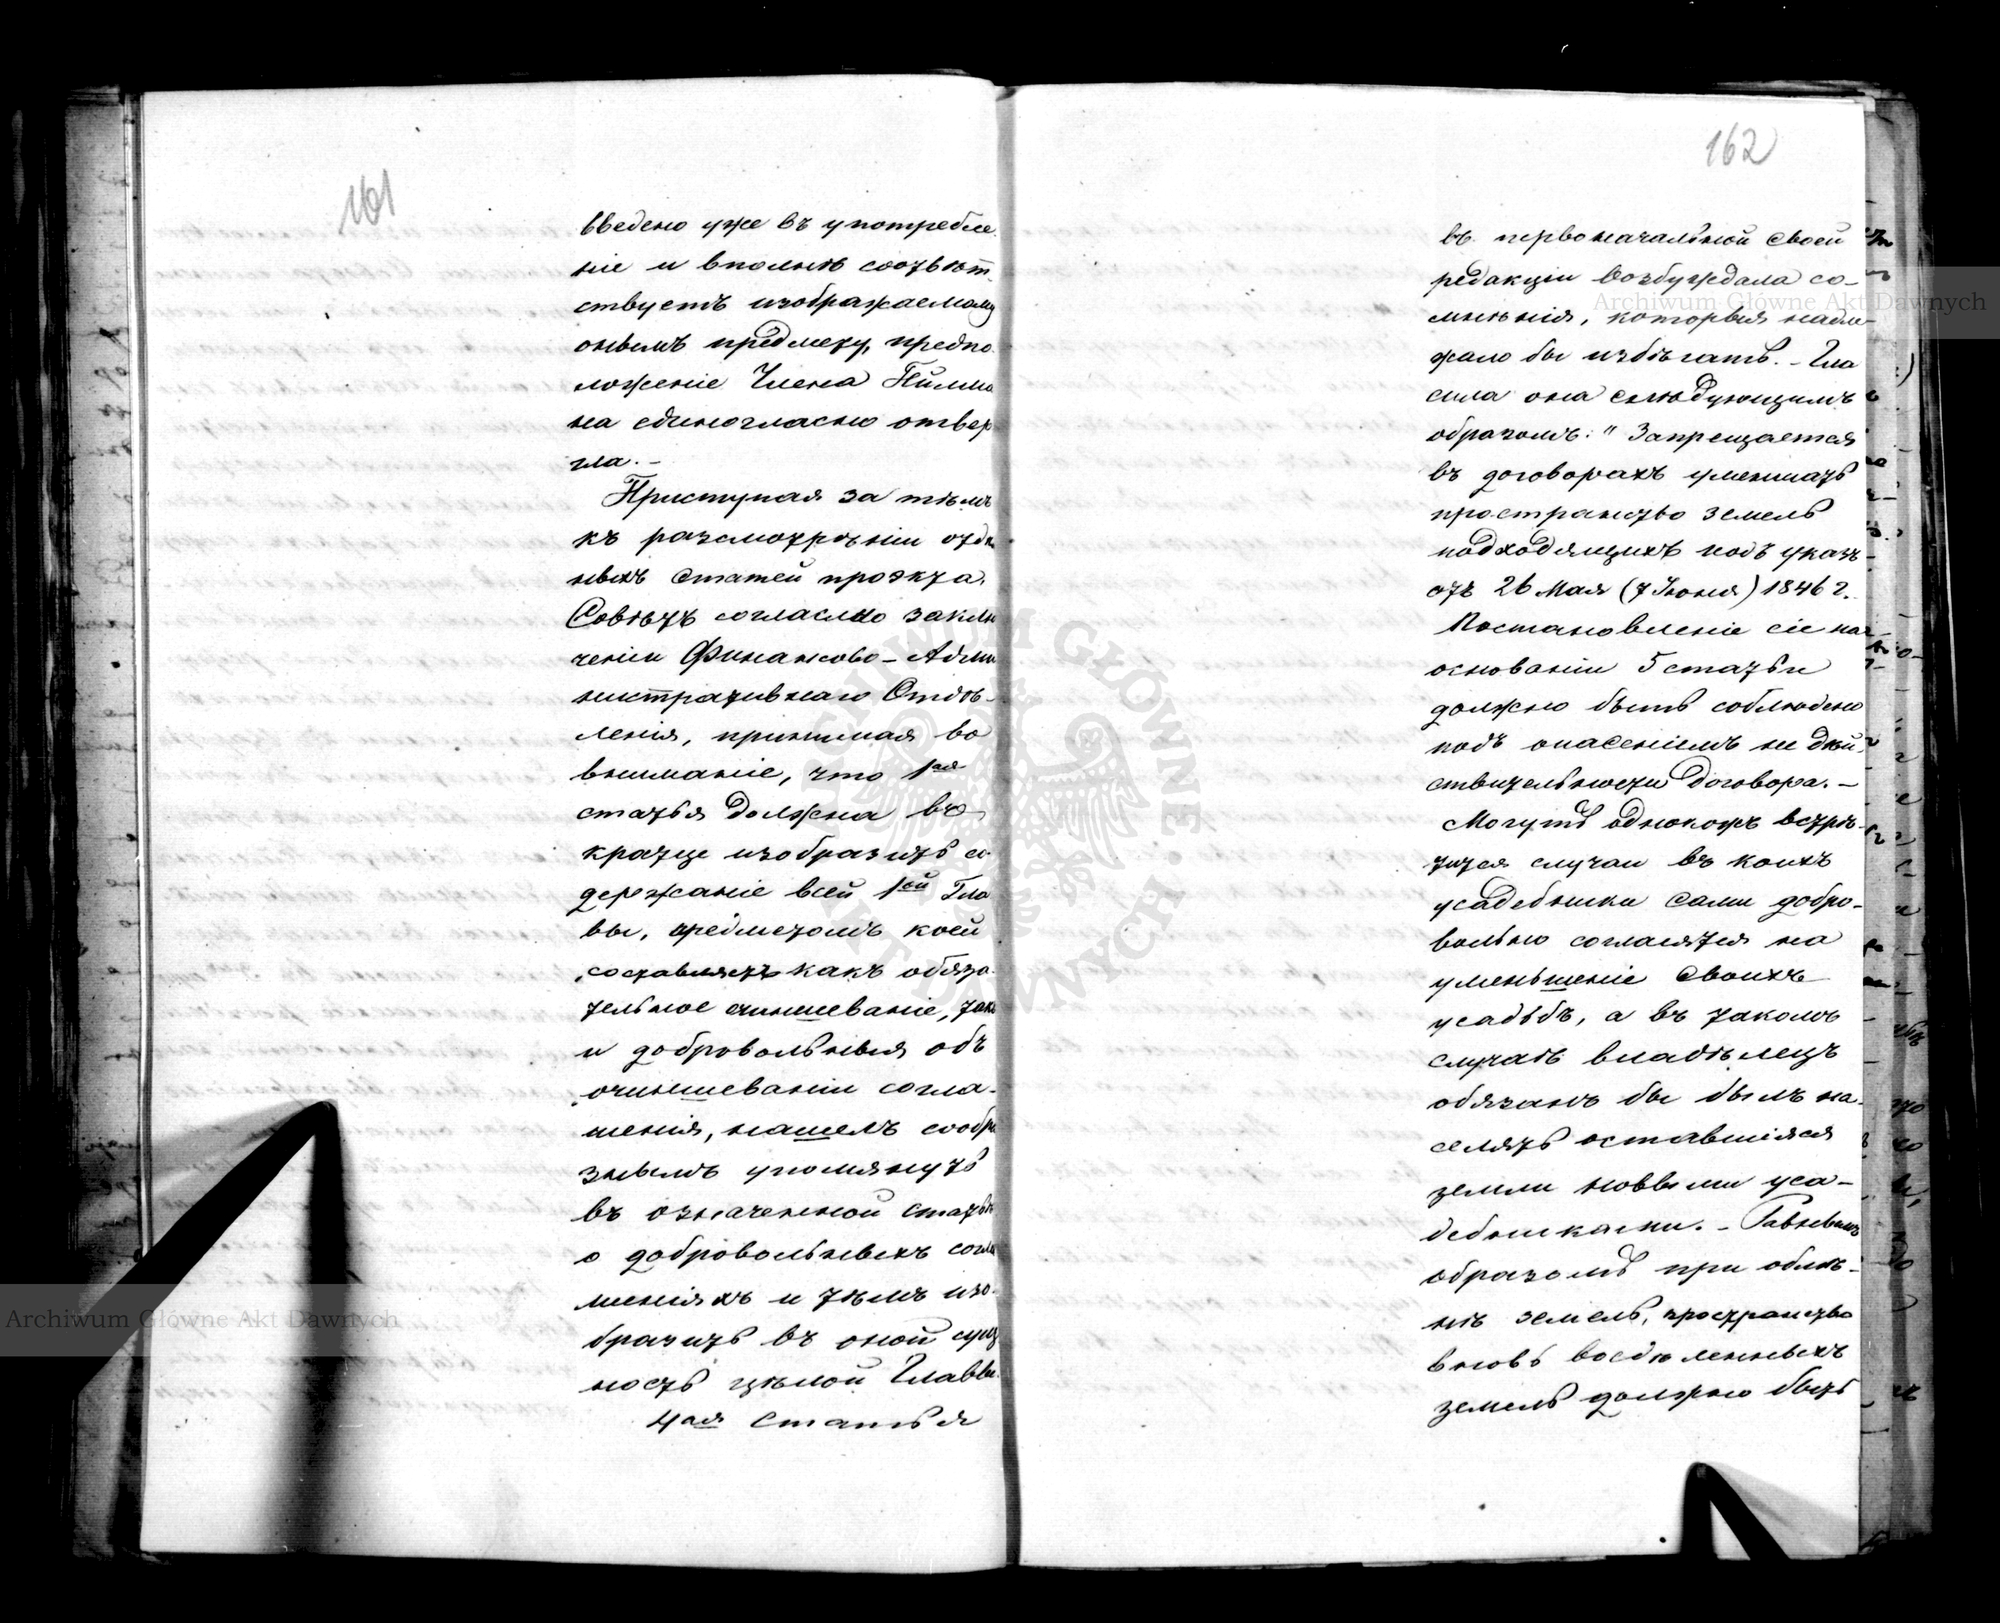 161
введено уже въ употребле
ніе и вполнѣ соотвѣт
ствуетъ изображаемому
онымъ предмету, предпо
ложеніе Члена
на единогласно отвер
гла. –
Приступая за тѣмъ
къ разсмотрѣнію отдѣ
ныхъ статей проэкта,
Совѣтъ согласно заклю
ченію Финансово – Адми
нистративнаго Отдѣ–
ленія, принимая во
вниманіе, что 1ая
статья должна въ
кратце изобразить со
держаніе всей 1ой Гла
вы, предметомъ коей
составляетъ какъ обяза
тельное очиншеваніе, такъ
и добровольныя объ
очиншеваніи согла–
шенія, нашелъ сообра
знымъ упомянуть
въ означенной статьѣ
о добровольныхъ согла
шеніяхъ и тѣмъ изо–
бразить въ оной сущ
ность цѣлой Главы.
4ая Статья
162
въ первоначальной своей
редакціи возбуждала со–
мнѣнія, которыя надле–
жало бы избѣгать. – Гла
сила она слѣдующимъ
образомъ: " Запрещается
въ договорахъ уменшать
пространство земель
подходящихъ подъ указъ
отъ 26 Мая (7 Іюня) 1846 г.
Постановленіе сіе на
основаніи 5 статьи
должно быть соблюдено
подъ опасеніемъ не дѣй–
ствительности договора. –
Могутъ однокожъ встрѣ–
тится случаи въ коихъ
усадебники сами добро–
вольно согласятся на
уменьшеніе своихъ
усадьбъ, а въ такомъ
случаѣ владѣлецъ
обязанъ бы былъ на–
селять оставшіяся
земли новыми уса–
дебниками. – Равнымъ
образомъ при обмѣ–
нѣ земель, пространство
вновь
земель должно быть
Archiwum Główne Akt Dawnych
Archiwum Główne Akt Dawnych
ARCHIWUM GŁÓWNE AKT DAWNYCH